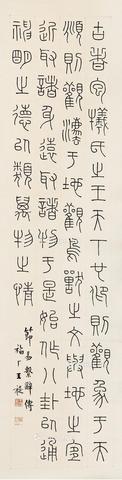 古者宓犧氏之王天下也卬則觀象于天
頫則觀灋于地觀鳥獸之文與地之宜
近取諸身遠取諸物于是始作八卦以通
神明之德以類萬物之情
節易繫辭傳
福厂王禔